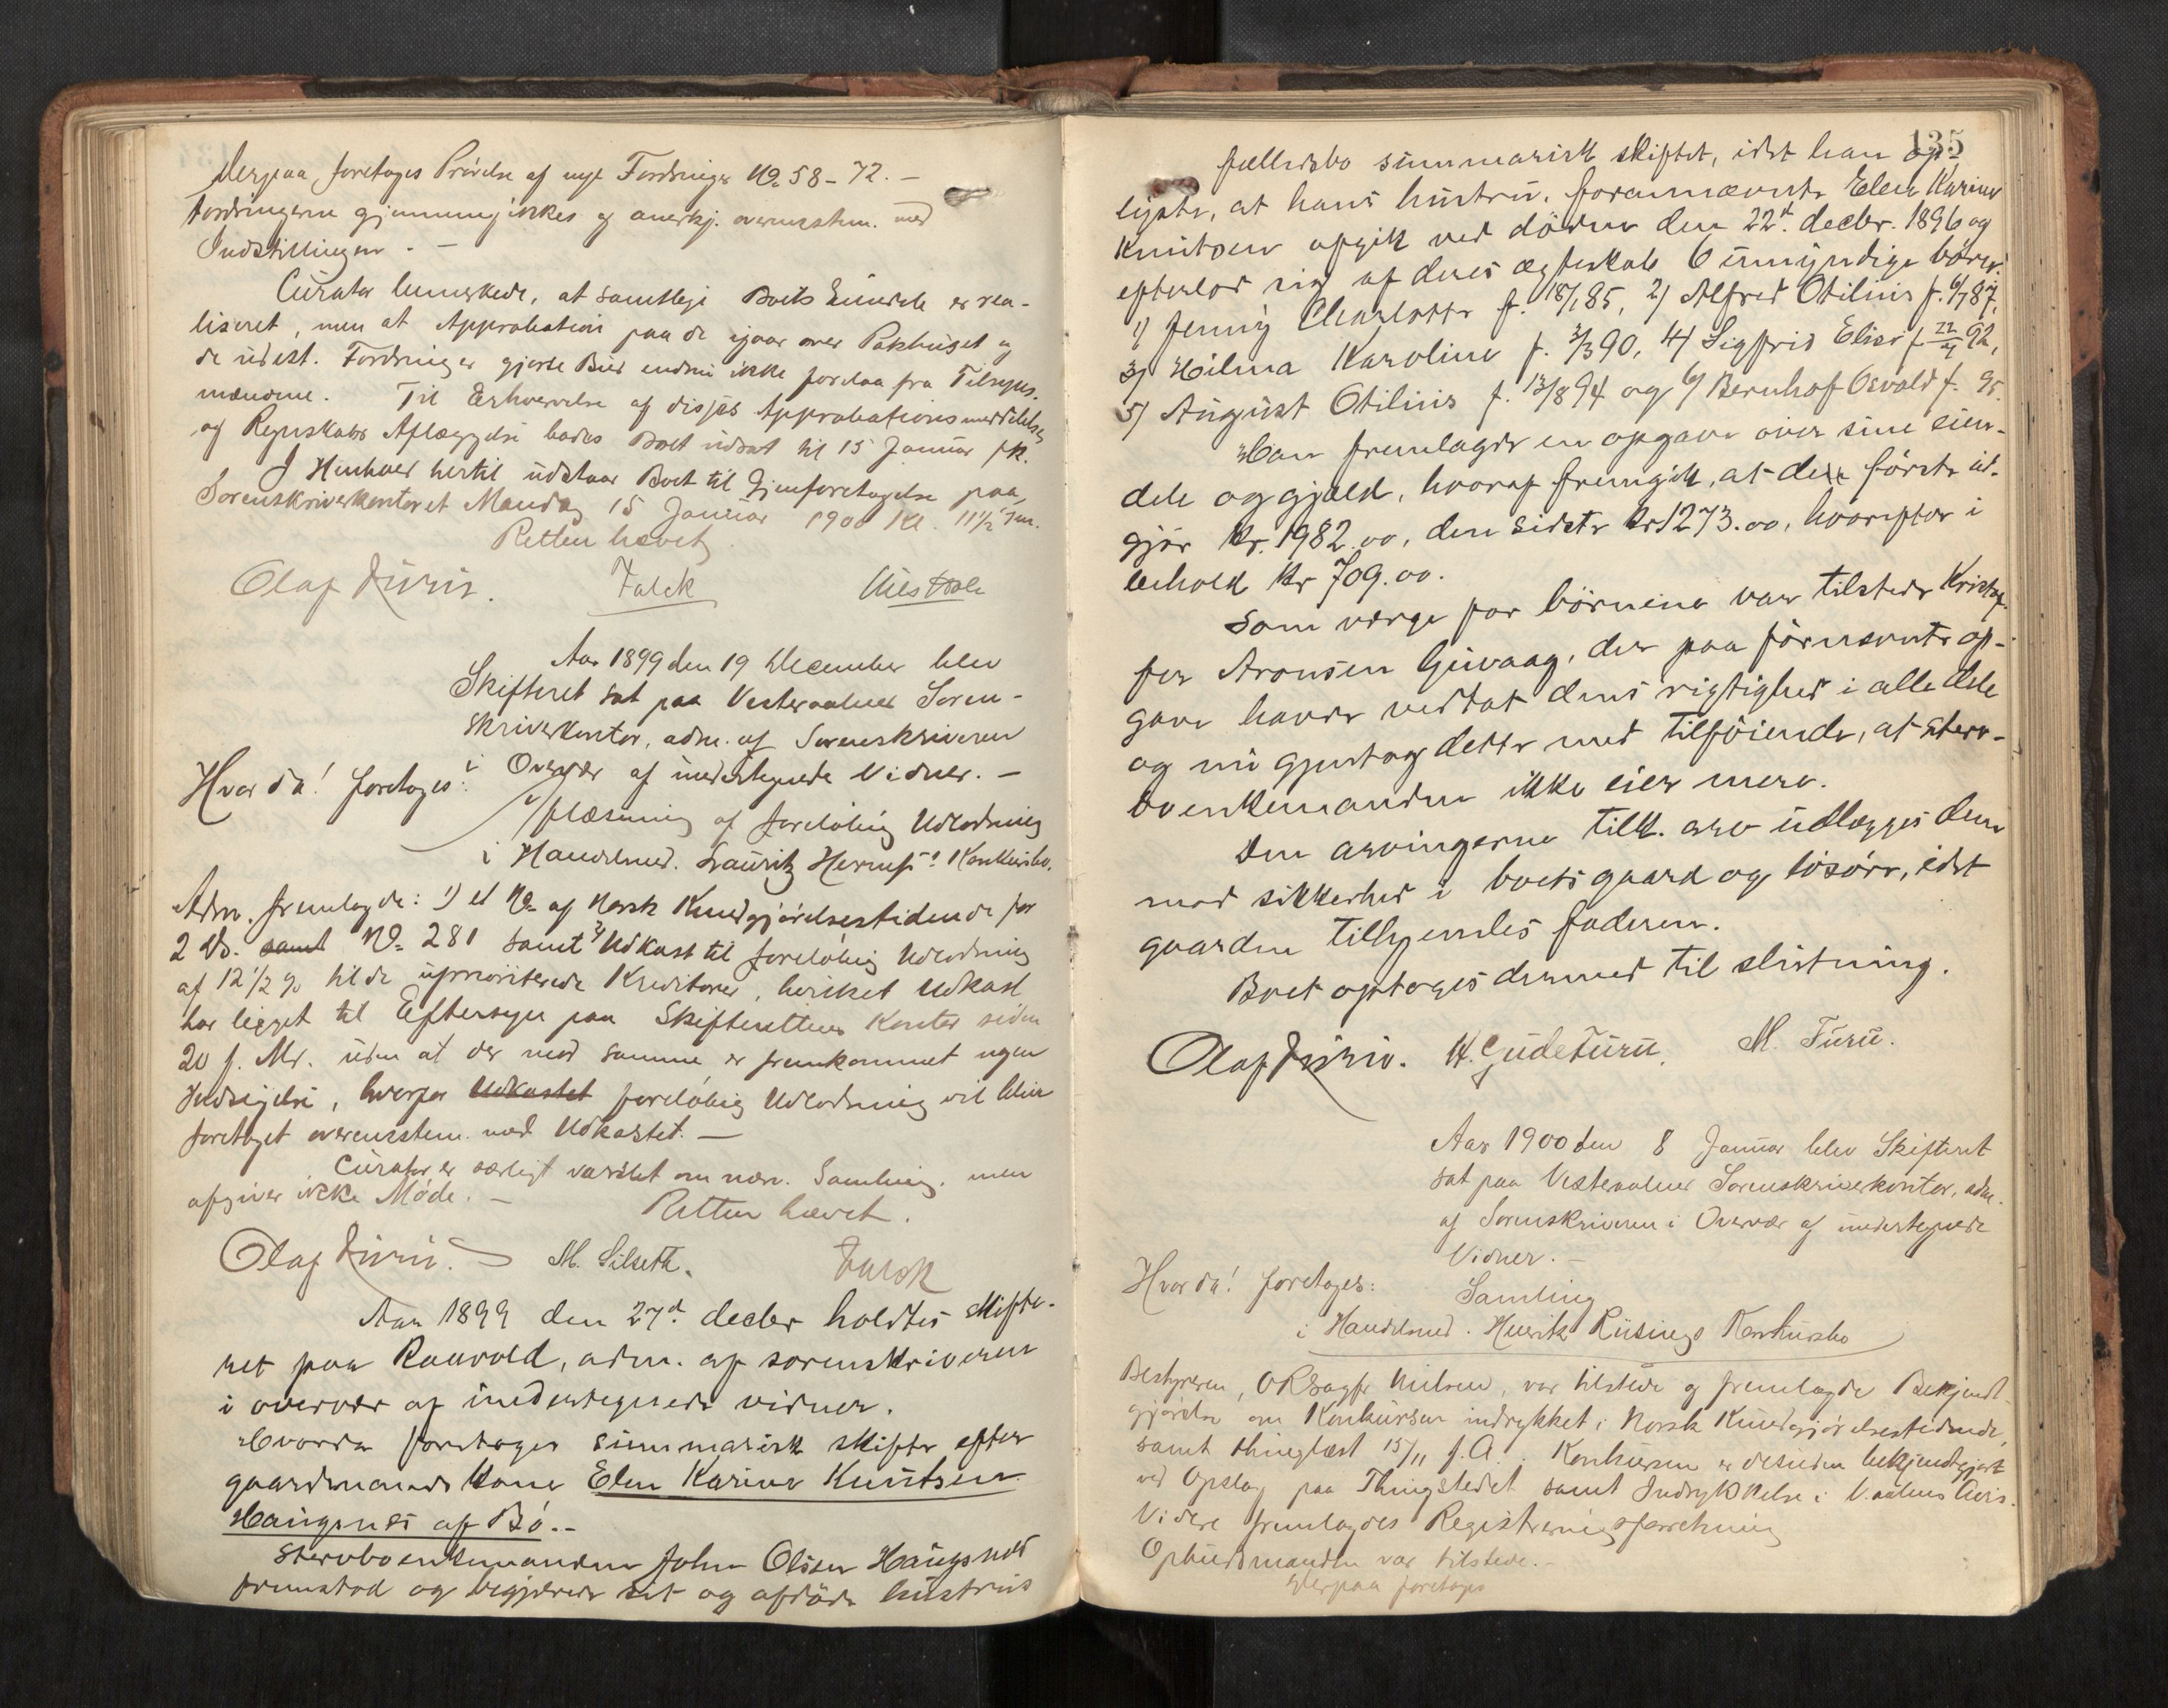 Derpaa foretoges Prøvelse af nye Fordringer No 58 - 72. -
Fordringerne gjennemgikkes og anerkj. overensstem. med
Indstillingen. -
Curator bemerkede, at samtlige Boets Eiendele er rea-
liseret, men at Approbation paa de igaar over Pakhuset og
de udest. Fordringer gjorte Bud endnu ikke forelaa fra Tilsyns-
mændene. Til Erhvervelse af disses Approbationsmeddelelse
og Regnskabs Aflæggelse bades Boet udsat til 15 Januar
I Henhold hertil udstaar Boet til Gjenforetagelse paa
Sorenskriverkontoret Mandag 15 Januar 1900 Kl. 11½ Fm.
Retten hævet.
Olaf Falck
Aar 1899 den 19 December blev
Skifteret sat paa Vesteraalens Soren-
skriverkontor, adm. af Sorenskriveren
i Overvær af undertegnede Vidner. -
Hvorda! foretoges:
Oplæsning af foreløbig Udlodning
i Handelsmd. Lauritz Konkursbo.
Adm. fremlagde: 1) et No af Norsk Kundgjørelsestidende for
2 ds. samt No 281 samt 2) Udkast til foreløbig Udlodning
af 12½ % til de uprioriterede Kreditorer, hvilket Udkast
har ligget til Eftersyn paa Skifterettens Kontor siden
20 f. Md. uden at der mod samme er fremkommet nogen
Indsigelse, hvorfor Udkastet foreløbig Udlodning vil blive
foretaget overensstem. med Udkastet. -
Curator er særligt varslet om nærv. Samling, men
afgiver ikke Møde. -
Retten hævet.
Olaf M. Silseth.
Aar 1899 den 27d. decbr holdtes skifte-
ret paa Raavold, adm. af sorenskriveren
i overvær af undertegnede vidner.
Hvorda foretoges summarisk skifte efter
gaardmands kone Elen Karine Knutsen
Haugsnes af Bø. -
Stervboenkemanden John Olsen Haugsnes
fremstod og begjærede sit og afdøde hustrus
135
fællesbo summarisk skiftet, idet han op-
lyste, at hans hustru, forannævnte Elen Karine
Knutsen afgik ved døden den 22d. decbr. 1896 og
efterlod sig af deres ægteskab 6 umyndige børn:
1) Jenny Charlotte f. 18/1 85, 2) Alfred Otilius f. 6/7 87,
3) Hilma Karoline f. 3/3 90, 4) Sigfrid Elise f 22/4 92,
5) August Otilius f. 13/8 94 og 6) Bernhof Osvald f. 95.
Han fremlagde en opgave over sine eien-
dele og gjæld, hvoraf fremgik, at den første ud-
gjør Kr. 1982.00, den sidste Kr 1273.00, hvorefter i
behold Kr 709.00.
Som værge for børnene var tilstede Kristof-
fer Aronsen Guvaag, der paa førnævnte op-
gave havde vedtat dens rigtighed i alle dele
og nu gjentog dette med tilføiende, at sterv-
boenkemanden ikke eier mere.
Den arvingerne tilk. arv udlægges dem
mod sikkerhed i boets gaard og løsøre, idet
gaarden tilhjemles faderen.
Boet optoges dermed til slutning.
Olaf H. Gude Turu. M. Turu.
Aar 1900 den 8 Januar blev Skifteret
sat paa Vesteraalens Sorenskriverkontor, adm.
af Sorenskriveren i Overvær af undertegnede
Vidner. -
Hvorda! foretoges:
Samling
i Handelsmd. Henrik Riisings Konkursbo
Bestyreren, ORsagfr Nielsen, var tilstede og fremlagde Bekjendt-
gjørelse om Konkursen indrykket i Norsk Kundgjørelsestidende,
samt thinglæst 15/11 f. A. Konkursen er desuden bekjendtgjort
ved Opslag paa Thingstedet samt Indrykkelse i V.aalens Avis.
Videre fremlagdes Registreringsforretning
Opbudsmanden var tilstede. -
Derpaa foretoges